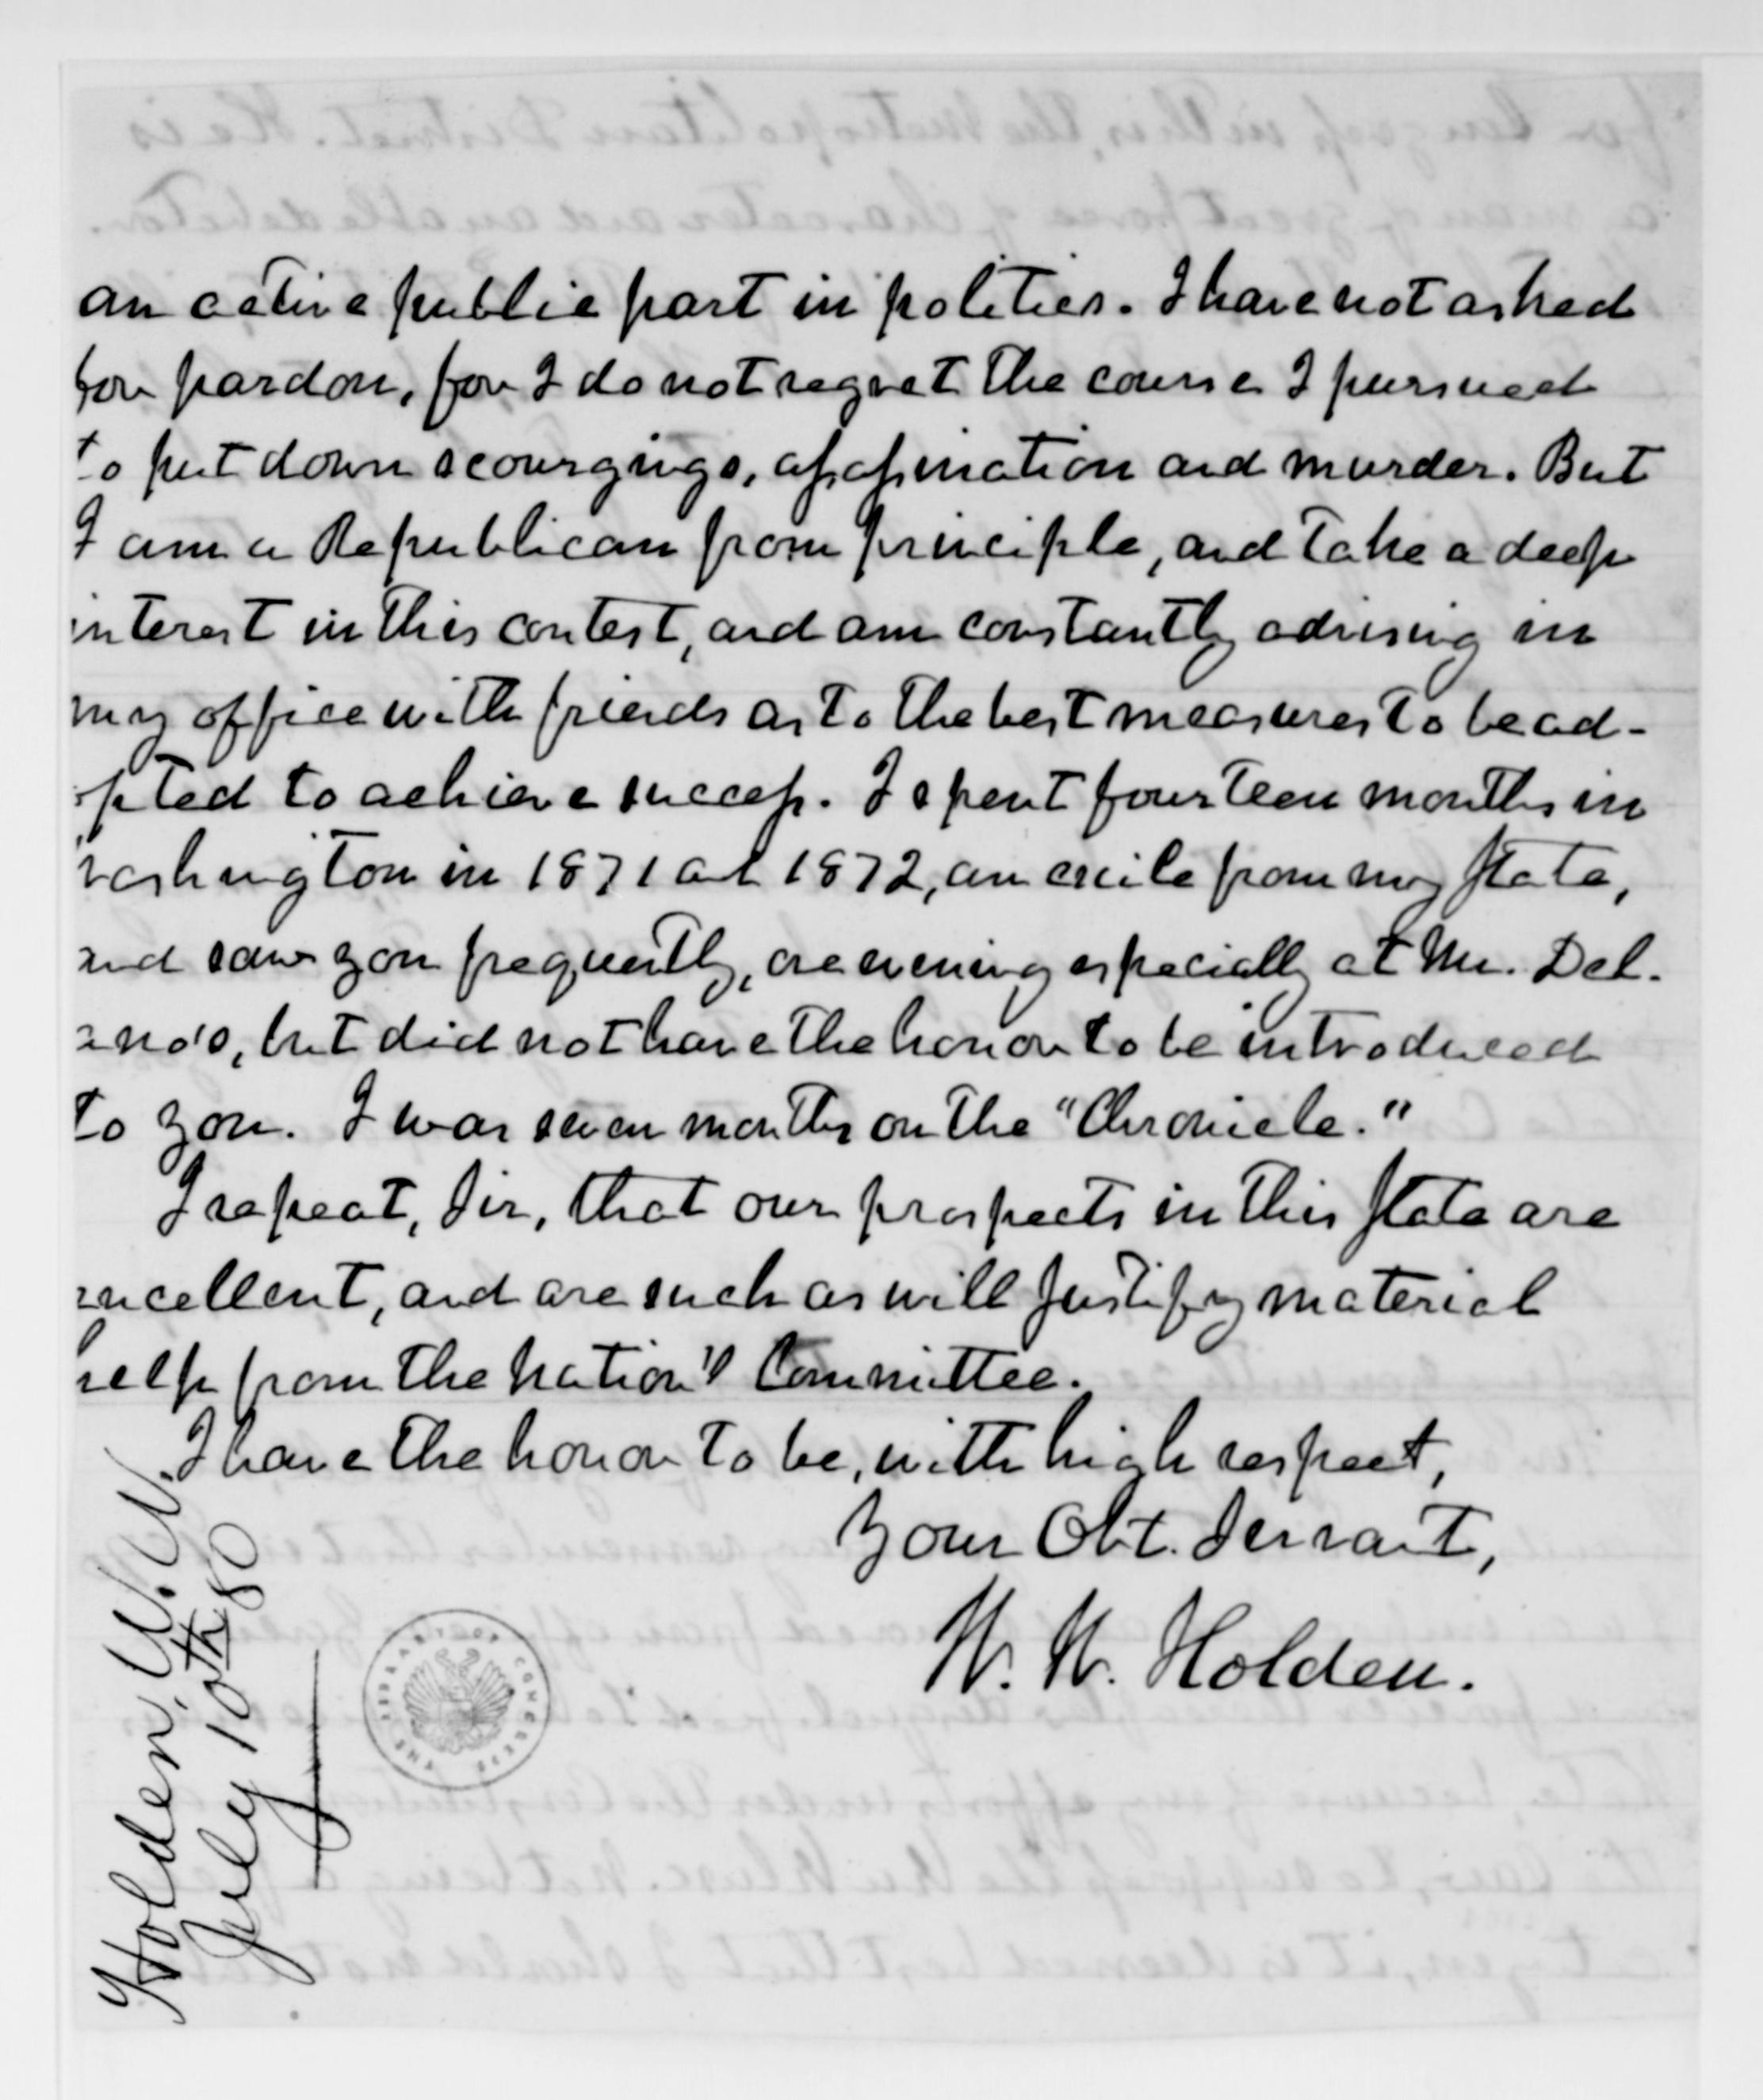 an active public part in politics. I have not asked
for pardon, for I do not regret the course I pursued
to put down scourgings, assassination and murder. But
I am a Republican from principle, and take a deep
interest in this contest, and am constantly advising in
my office with friends as to the best measures to be ad-
opted to achieve success. I spent fourteen months in
Washington in 1871 and 1872, an exile from my State,
and saw you frequently, one evening especially at Mr. Del-
ano's, but did not have the honor to be introduced
to you. I was seven months on the "Chronicle."
I repeat, Sir, that our prospects in this State are
excellent, and are such as will justify material
help from the Nation'l Committee.
I have the honor to be, with high respect,
Your Obt. Servant,
W. W. Holden.
Holden, W. W.
July 10th 80
THE LIBRARY OF CONGRESS